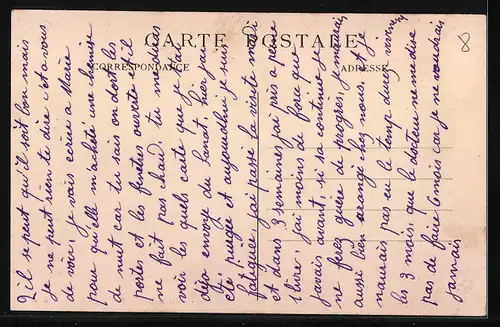 CARTE POSTALE
CORRESPONDANCE
ADRESSE
il se peut qu'il soit bon mais
je ne peut rien te dire c'est a vous
de voir, je vais écrire a Marie
pour qu'elle m'achete une chemise
de nuit car tu sais on dort les
portes et les fenêtres ouverte et il
ne fait pas chaud. tu me diras
voir les quels carte que je t'ai
déja envoyé du Sanat. hier j'ai
été purgée et aujourdhui je suis
fatiguée, j'ai passé la visite
et dans 3 semaine j'ai pris a peine
1 livre. j'ai moins de force que
javais avant, si sa continue je
ne ferez guère de progrès, je
aussi bien arangé chez nous. et je
naurais pas eu le temp durez
les 3 mois. que le docteur ne me dise
pas de faire 6 mois car je ne voudrais
jamais